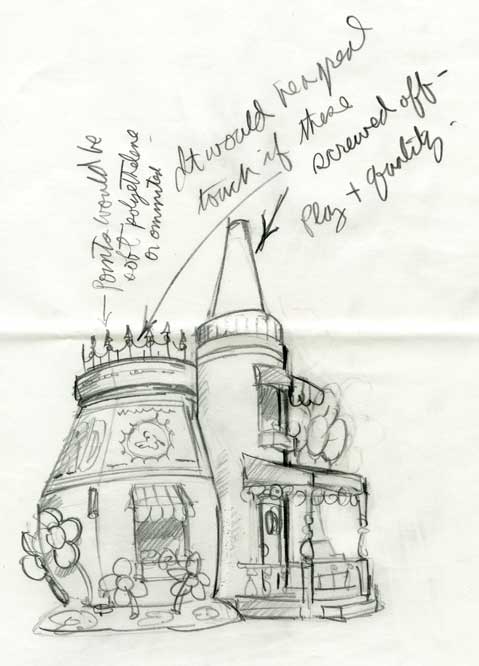 It would be a real
touch if these
screwed off -
Play + quality.
← points would be
soft polyethelene
or ommitted -